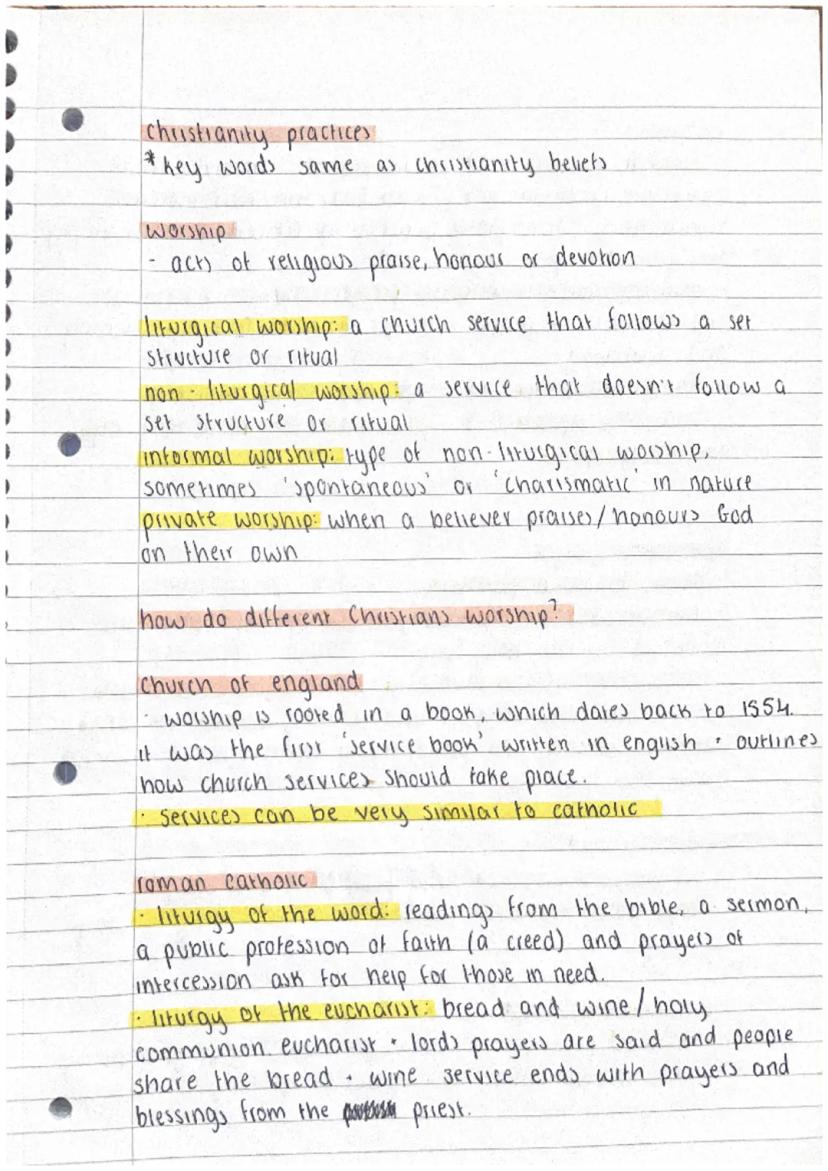 christianity practices
* key words same as christianity beliefs
worship
- acts of religious praise, honour or devotion
liturgical worship: a church service that follows a set
structure or ritual
non-liturgical worship: a service that doesn't follow a
set structure or ritual
informal worship: type of non-liturgical worship,
sometimes 'spontaneous' or 'charismatic' in nature
private worship: when a believer praises/honours God
on their own
how do different Christians worship?
church of england
· worship is rooted in a book, which dates back to 1554.
it was the first 'service book' written in english + outlines
how church services should take place.
· services can be very similar to catholic
roman catholic
· liturgy of the word: readings from the bible, a sermon,
a public profession of faith (a creed) and prayers of
intercession ask for help for those in need.
· liturgy of the eucharist: bread and wine/holy
communion. eucharist + lords prayers are said and people
share the bread + wine. service ends with prayers and
blessings from the priest.